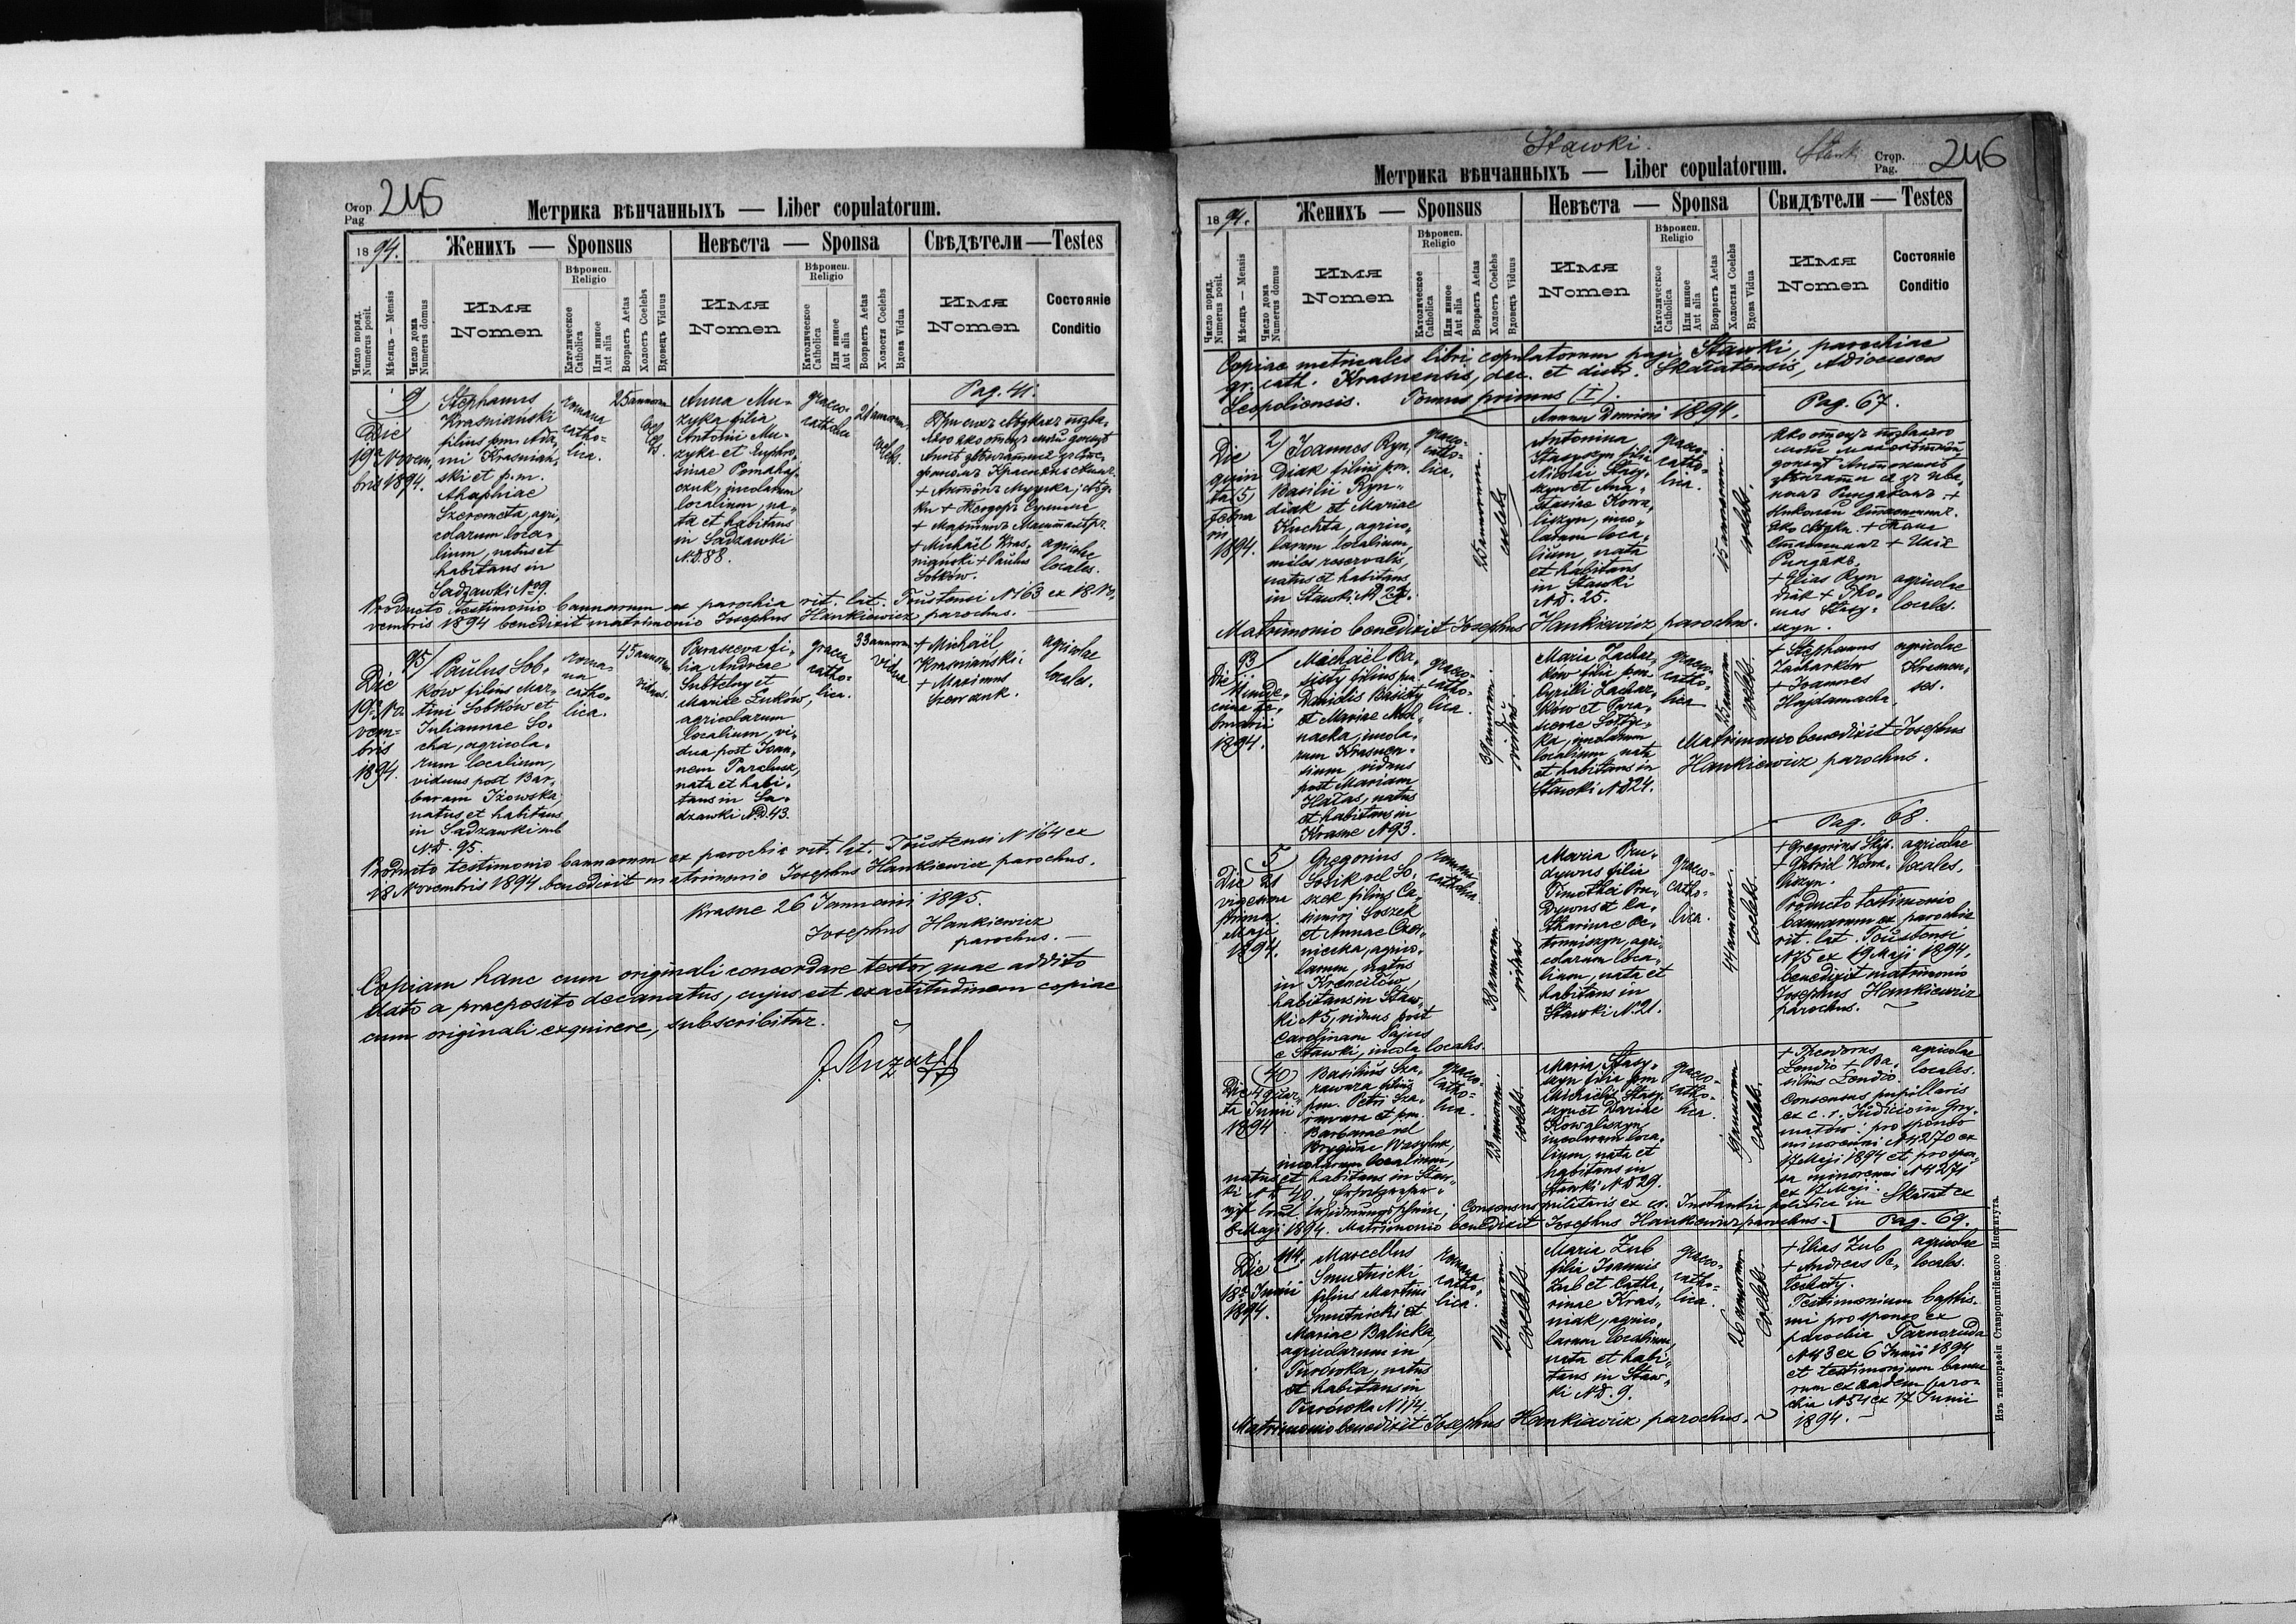 Стор.
Pag
245
Метрика вѣнчанныхъ — Liber copulatorum.
1894.
Женихъ — Sponsus
Невѣста — Sponsa
Свѣдѣтели — Testes
Число поряд.
Numerus posit.
Мѣсяцъ — Mensis
Число дома
Numerus domus
Имя
Nomen
Вѣроисп.
Religio
Католическое
Catholica
Или инное
Aut alia
Возрастъ Aetas
Холостъ Coelebs
Вдовецъ Viduus
Имя
Nomen
Вѣроисп.
Religio
Католическое
Catholica
Или инное
Aut alia
Возрастъ Aetas
Холостя Coelebs
Вдова Vidua
Имя
Nomen
Состояніе
Conditio
Die
19a Novem
bris 1894.
9
Stephanus
Kraśniański
filius pm. Ada,
mi Krasniań,
ski et p.m.
Ahaphiae
Szeremeta, agri,
colarum loca,
lium, natus et
habitans in
Sadzawki No 9.
romano
catho-
lica.
25 annorum
coelebs
Anna Mu-
zyka filia
Antoni Mu-
zyka et Euphro
sinae
czuk, incolarum
localium, na-
ta et habitans
in Sadzawki
N.D. 88.
graeco-
catholica
21 annorum
coelebs.
Pag. 41.
+ Michaël Kras,
nianski + Paulus
Sobków.
agricolae
locales.
Producto testimonio bannorum ex parochia rit. lat. Toustensi N 163 ex 18 No,
vembris 1894 benedixit matrimonio Josephus Hankiewicz parochus. —
Die
19a No
vem-
bris
1894.
95
Paulus Sob-
ków filius Mar-
tini Sobków et
Juliannae So-
cha, agricola-
rum localium,
viduus post Bar-
baram Iżowska,
natus et habitans
in Sadzawki sub
N.D. 95.
roma-
na
catho-
lica.
45 annorum
viduus.
Parasceva fi-
lia Andreae
Subtelny et
Mariae Żuków,
agricolarum
localium, vi-
dua post Joan-
nem Parelusz,
nata et habi-
tans in Sa-
dzawki N.D. 43.
graeca
catho-
lica.
33 annorum
vidua
+ Michaël
Krasniański;
+ Maximus
Szewczuk.
agricolae
locales.
Producto testimonio bannorum ex parochia rit. lat. Toustensi N 164 ex
18 Novembris 1894 benedixit matrimonio Josephus Hankiewicz parochus.
Krasne 26 Januarii 1895.
Josephus Hankiewicz
parochus. —
Copiam hanc cum originali concordare testor, quae addito
dato a praeposito decanatus, cujus est exactitudinem copiae
cum originali exquirere, subscribitur.
Stawki.
Метрика вѣнчанныхъ — Liber copulatorum.
Stawki
Стор.
Pag.
246
1894.
Женихъ — Sponsus
Невѣста — Sponsa
Свидѣтели — Testes
Число поряд.
Numerus posit.
Мѣсяцъ — Mensis
Число дома
Numerus domus
Имя
Nomen
Вѣроисп.
Religio
Католическое
Catholica
Или инное
Aut alia
Возрастъ Aetas
Холостъ Coelebs
Вдовецъ Viduus
Имя
Nomen
Вѣроисп.
Religio
Католическое
Catholica
Или инное
Aut alia
Возрастъ Aetas
Холостая Coelebs
Вдова Vidua
Имя
Nomen
Состояніе
Conditio
Copiae metricales libri copulatorum pagi Stawki, parochiae
gr. cath. Krasnensis, dec. et distr. Skałatensis, Adioeceseos
Leopoliensis. Tomus primus (I).
Annus Domini 1894.
Pag. 67.
Die
quin
ta (5)
Februa
rii
1894.
2
Joannes Ryn,
diak filius pm.
Basilii Ryn-
diak et Mariae
Kuchta, agrico,
larum localium,
miles reservalis,
natus et habitans
in Stawki N.D. 22.
graeco-
catho-
lica.
25 annorum.
coelebs
Antonina
Stasyszyn filia
Nicolai Stasy-
szyn et Ana-
stasiae Kowa,
liszyn, inco-
larum loca-
lium, nata
et habitans
in Stawki
N.D. 25.
graeco-
catho-
lica.
15 annorum.
coelebs.
+ Elias Ryn
diak + Tho-
mas Stasy-
szyn.
agricolae
locales.
Matrimonio benedixit Josephus Hankiewicz, parochus.
Die
Unde-
cima Fe,
bruarii
1894.
93
Michaël Ba,
sisty filius pm.
Danielis Basisty
et Mariae
incola,
rum Krasnen-
sium, viduus
post Mariam
Hałas, natus
et habitans in
Krasne N 93.
graeco-
catho-
lica.
39 annorum.
viduus
Maria Zachar,
ków filia pm.
Cyrilli Zachar,
ków et Para-
scevae Soltys-
ka, incolarum
localium, nata
et habitans in
Stawki N.D. 24.
graeco-
catho-
lica
25 annorum
coelebs.
+ Stephanus
Zacharków
+ Joannes
Hajdamacha,
agricolae
Krasnen-
ses.
Matrimonio benedixit Josephus
Hankiewicz parochus.
Pag. 68.
Die 21
vigesima
prima
Maji
1894.
5
Gregorius
Sosik vel So,
szek filius Ca-
simiri Soszek
et Annae Czer-
niecka, agrico-
larum, natus
in Krenciłów,
habitans in Staw-
ki N 5, viduus post
Carolinam Pajus
e Stawki, incola localis.
romano
catholica.
38 annorum.
viduus
Maria Pru-
dywus filia
Timothei Pru-
dywus et Ca-
tharinae Pe-
truniszyn, agri-
colarum loca-
lium, nata et
habitans in
Stawki N. 21.
graeco-
catho-
lica.
44 annorum.
coelebs.
+ Gabriel Kowa-
liszyn.
agricolae
locales.
Producto testimonio
bannorum ex parochia
rit. lat. Toustensi
N 75 ex 19 Maji 1894,
benedixit matrimonio
Josephus Hankiewicz
parochus.
Die 4 quar-
ta Junii
1894
40
Basilius Sza-
rawara filius
pm. Petri Sza-
rawara et pm.
Barbarae vel
Brygidae Wasyluk,
incolarum localium,
natus et habitans in Staw-
ki N.D. 40,
graeco-
catho-
lica.
23 annorum.
coelebs.
Maria Stasy-
szyn filia pm
Michaëlis Stasy-
szyn et Dariae
Kowaliszyn,
incolarum loca-
lium, nata et
habitans in
Stawki N.D. 29.
graeco-
catho-
lica.
19 annorum
coelebs.
+ Theodorus
Łendio + Ba,
silius Łendio.
agricolae
locales.
Consensus pupillaris
ex c. r. Judicio in Grzy-
małów: pro sponso
minorenni N 4270 ex
17 Maji 1894 et pro spon-
sa minorenni N 4271
ex 17 Maji.
Consensus militaris ex cr. Instantia politica in Skałat ex
8 Maji 1894. Matrimonio benedixit Josephus Hankiewicz parochus. —
Pag. 69.
Die
18a Junii
1894.
114.
Marcellus
Smutnicki
filius Martini
Smutnicki et
Mariae Balicka,
agricolarum in
Turówka, natus
et habitans in
Turówka N 114.
romano
catho-
lica.
24 annorum.
coelebs.
Maria Zub
filia Joannis
Zub et Catha,
rinae Kras-
niak, agrico-
larum localium,
nata et habi-
tans in Staw-
ki N.D. 9.
graeco-
catho-
lica.
26 annorum
coelebs.
+ Elias Zub
+ Andreas Pe,
agricolae
locales.
Testimonium baptis-
mi pro sponso ex
parochia Tarnoruda
N 43 ex 6 Junii 1894
et testimonium banno
rum ex eadem paro-
chia N 54 ex 17 Junii
1894. —
Matrimonio benedixit Josephus Hankiewicz parochus.
Изъ типографіи Ставропигійского Института.